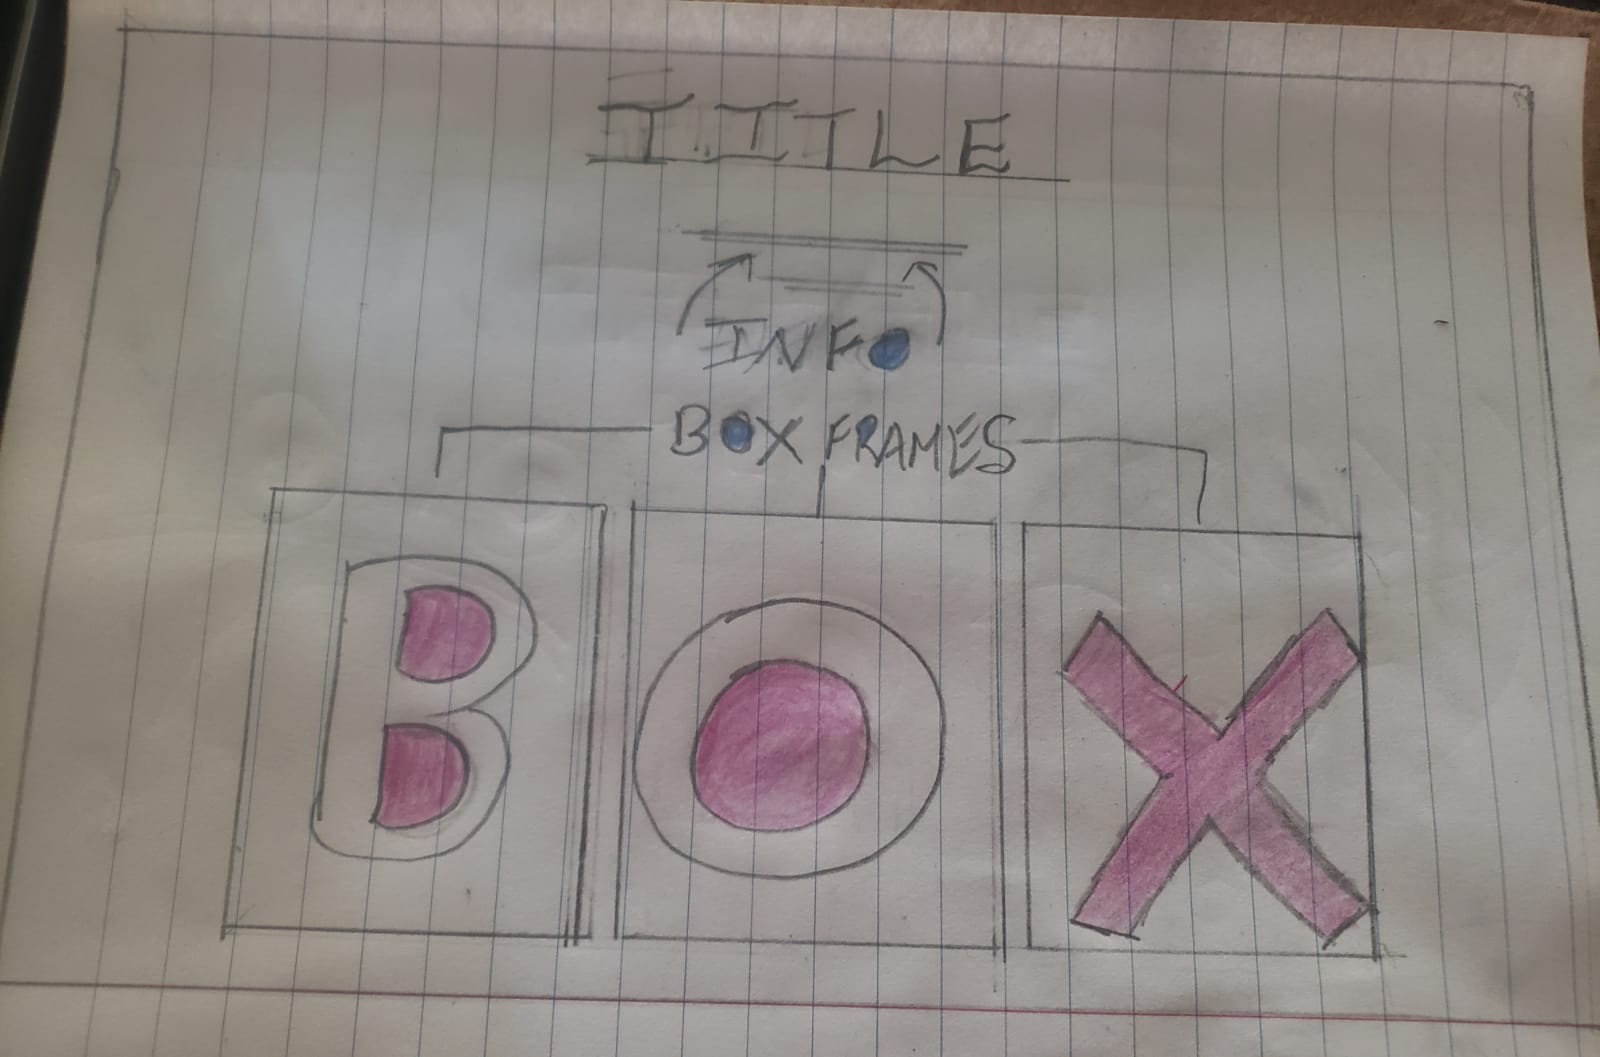 TITLE
INFO
BOX FRAMES
B O X